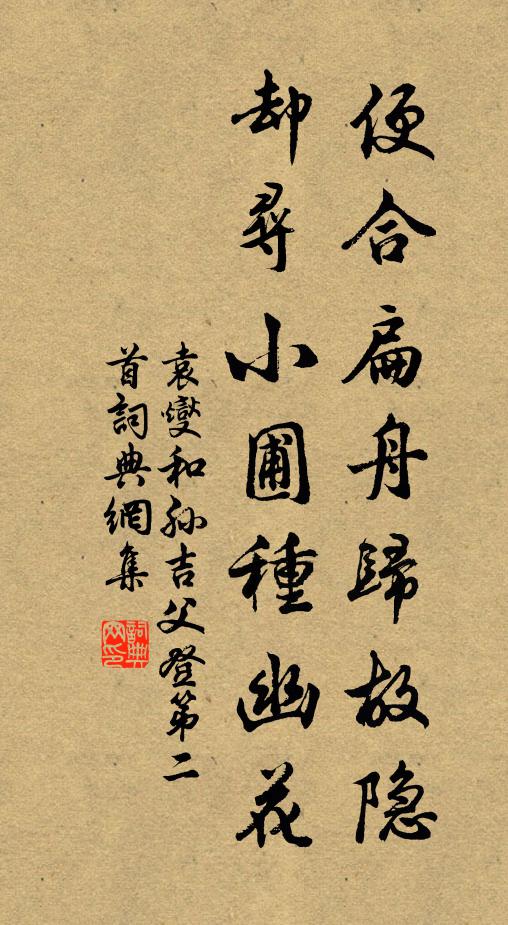 便合扁舟歸故隐
却尋小圃種幽花
袁燮和孫吉父登第二
首詞典網集
詞典网印